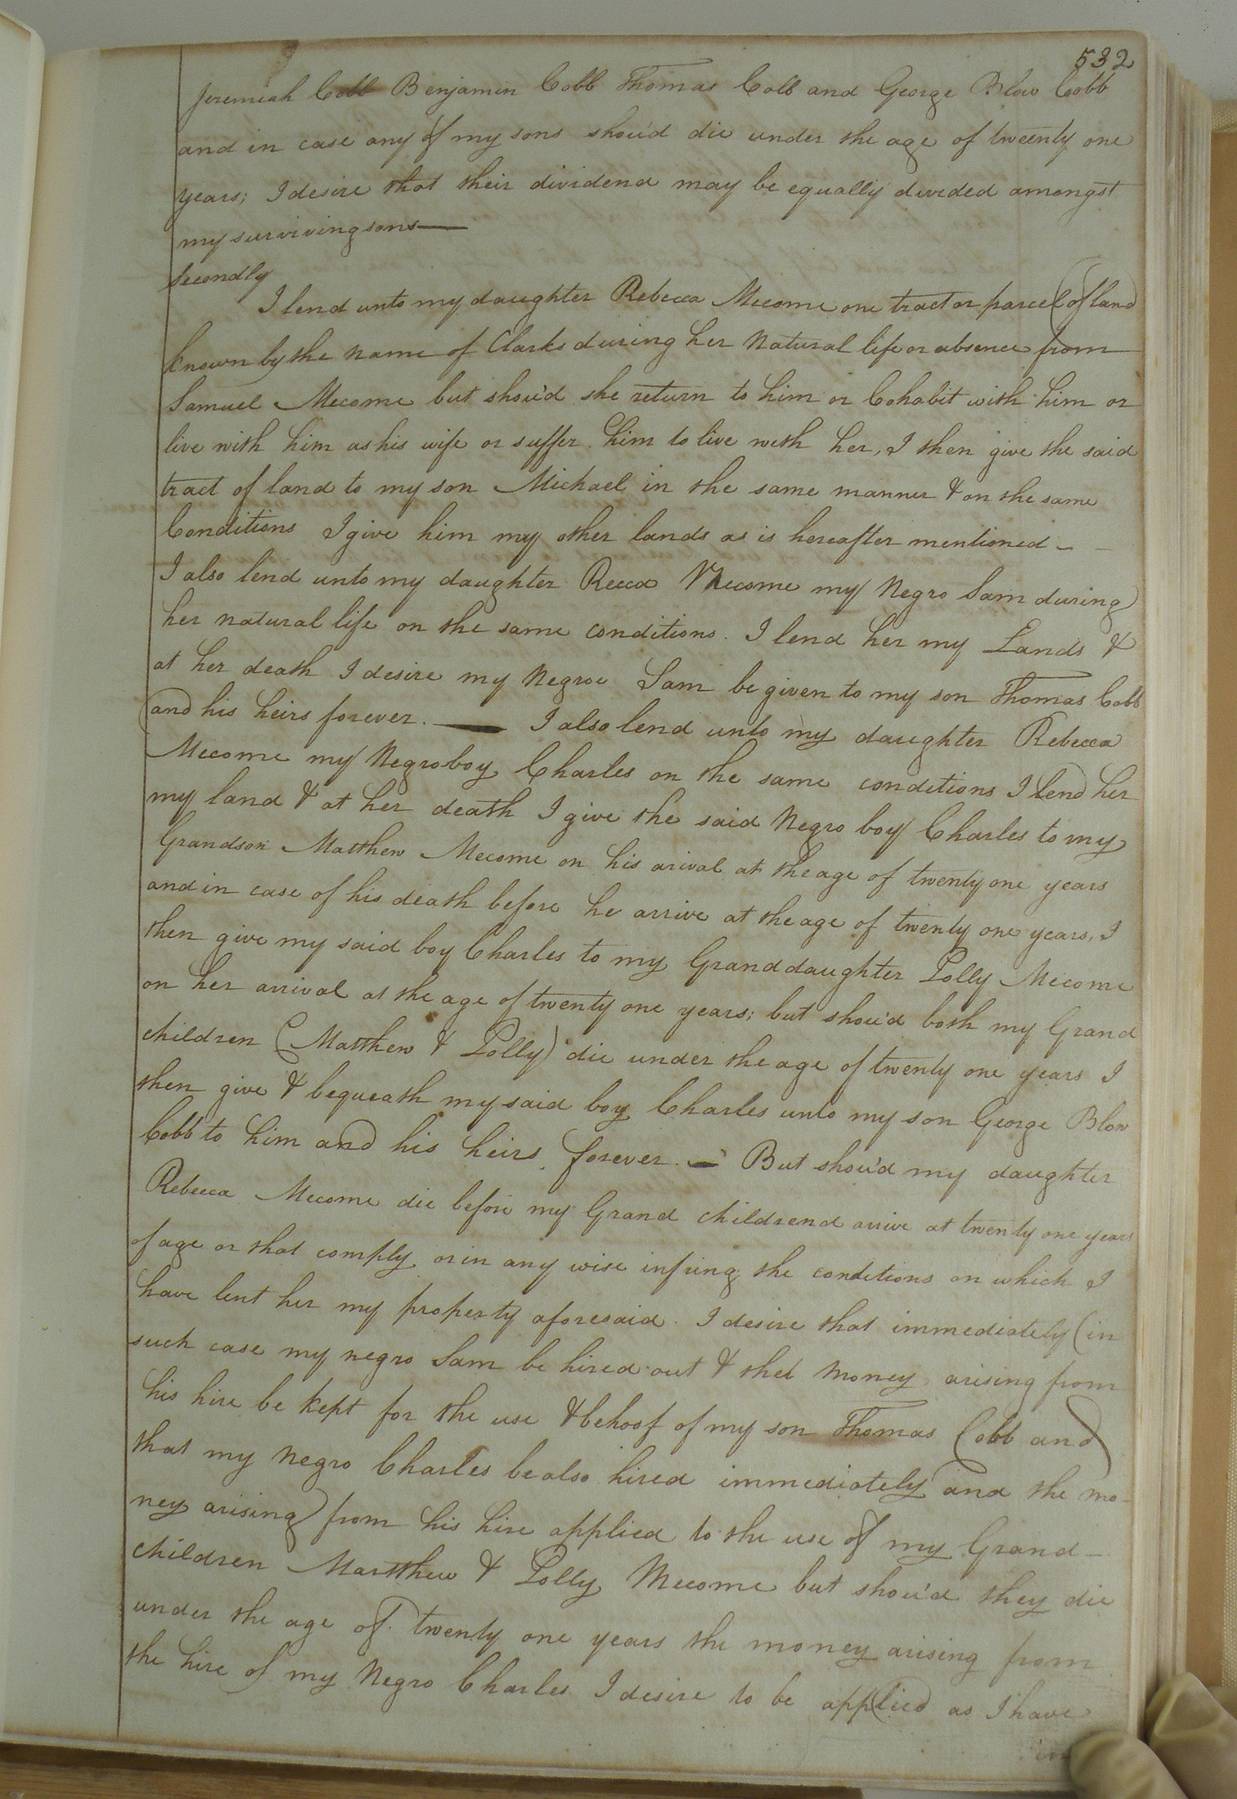 532
Jeremiah Cobb Benjamin Cobb Thomas Cobb and George Blow Cobb
and in case any of my sons shou'd die under the age of tweenty one
years; I desire that their dividend may be equally divided amongst
my surviving sons
Secondly
I lend unto my daughter Rebecca Mecome one tract or parcel of land
known by the name of Clarks during her natural life or absence from
Samuel Mecome but shou'd she return to him or Cohabit with him or
live with him as his wife or suffer him to live with her, I then give the said
tract of land to my son Michael in the same manner & on the same
Conditions I give him my other lands as is hereafter mentioned -
I also lend unto my daughter Recca Mecome my Negro Sam during
her natural life on the same conditions. I lend her my Lands &
at her death I desire my Negroe Sam be given to my son Thomas Cobb
and his heirs forever. — I also lend unto my daughter Rebecca
Mecome my Negro boy Charles on the same conditions I lend her
my land & at her death I give the said Negro boy Charles to my
Grandson Matthew Mecome on his arival at the age of twenty one years
and in case of his death before he arrive at the age of twenty one years, I
then give my said boy Charles to my Granddaughter Polly Mecome
on her arrival at the age of twenty one years; but shou'd both my Grand
children (Matthew & Polly) die under the age of twenty one years I
then give & bequeath my said boy Charles unto my son George Blow
Cobb to him and his heirs forever. — But shou'd my daughter
Rebecca Mecome die before my Grand childrend arrive at twenty one years
of age or that comply or in any wise infring the conditions on which I
have lent her my property aforesaid. I desire that immediately (in
such case my negro Sam be hired out & the money arising from
his hire be kept for the use & behoof of my son Thomas Cobb and
that my Negro Charles be also hired immediately and the mo-
ney arising from his hire applied to the use of my Grand-
children Martthew & Polly Mecome but shou'd they die
under the age of twenty one years the money arising from
the hire of my Negro Charles I desire to be applied as I have